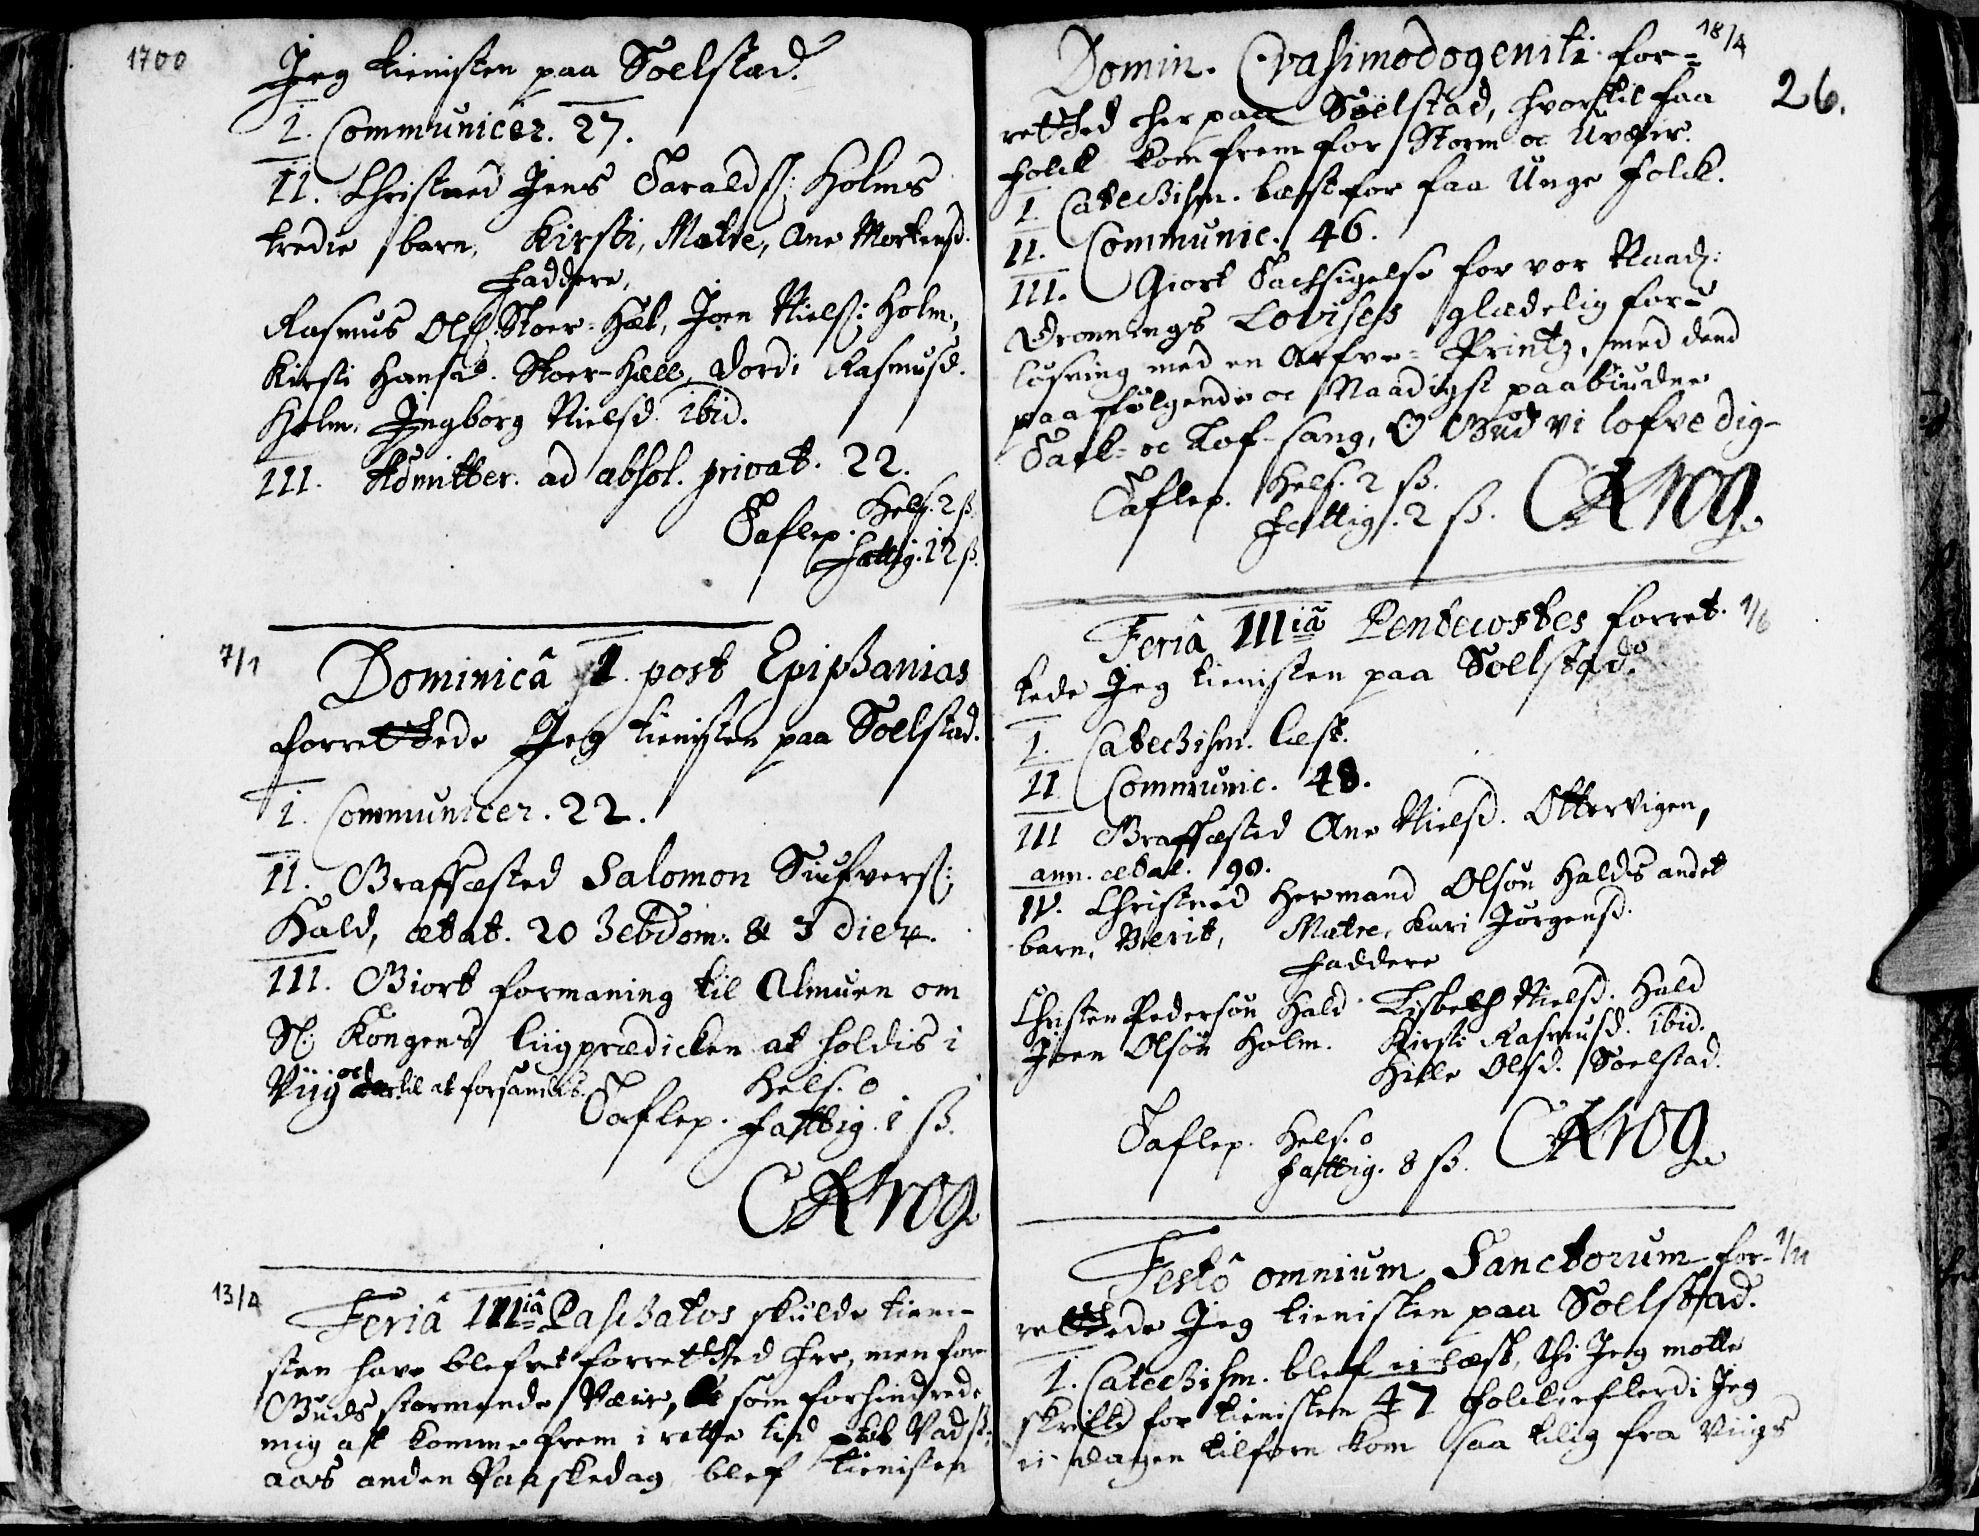 1700
Jeg tienisten paa Soelstad.
I. Communicer. 27.
II. Christned Jens Haralds: Holms
tredie barn, Kirsti, Matre, Ane Mortensd.
Faddere,
Rasmus Ols: Stoer-Hæl, Joen Niels: Holm,
Kirsti Hansd. Stoer-Hæll, Dordi Rasmusd.
Holm, Ingborg Nielsd. ibid.
III. Admitter. ad absol. privat. 22.
Taflep. Hels. 2 ß.
Fattig. 12 ß.
7/1
Dominicâ 1. post Epiphanias
forrettede Jeg tienisten paa Soelstad.
I. Communicer. 22.
II. Graffæsted Salomon Siufvers:
Hald, ætat. 20 hebdom. & 3 dier.
III. Giort formaning til Almuen om
Sl: Kongens liigprædicken at holdis i
Viig oc dertil at forsamles.
Taflep. Hels. 0
Fattig. 1 ß.
CKrog
13/4
Feriâ IIIiâ Paschatos skulde tieni-
sten have blefvet forretted her, men for
Guds stormende Væir, som forhindrede
mig at komme frem i rette tid til Vads-
aas anden Paaskedag, blef tienisten
18/4
26.
Domin. Qvasimodogeniti for-
retted her paa Soelstad, hvortil faa
Folck kom frem for Storm oc Uvæir.
I. Catechism. læst for faa Unge Folck.
II. Communic. 46.
III. Giort Tachsigelse for vor Naad:
Dronnings Lovises glædelig for-
løsning med en Arfve-Printz, med dend
paafølgende oc Naadigst paabiudne
Tack- oc Lof-sang, O Gud vi lofve dig-
Taflep. Hels. 2 ß.
Fattig. 2 ß.
CKrog
1/6
Feriâ IIIiâ Pentecostes forret-
tede Jeg tienisten paa Soelstad.
I. Catechism. læst.
II. Communic. 48.
III Graffæsted Ane Nielsd. Ottervigen,
ann. ætat. 90.
IV. Christned Hermand Olsøn Halds andet
barn, Berit, Matre, Kari Jørgensd.
Faddere
Christen Pedersøn Hald Lisbeth Nielsd. Hald
Joen Olsøn Holm. Kirsti Rasmusd. ibid.
Hille Olsd. Soelstad.
Taflep. Hels. 0
Fattig. 8 ß.
CKrog
1/11
Festô omnium Sanctorum for-
rettede Jeg tienisten paa Soelstad.
I. Catechism. blef ei læst, thi Jeg motte
skrifte for tienisten 47 folck efterdi Jeg
ei dagen tilforn kom saa tilig fra Viigs